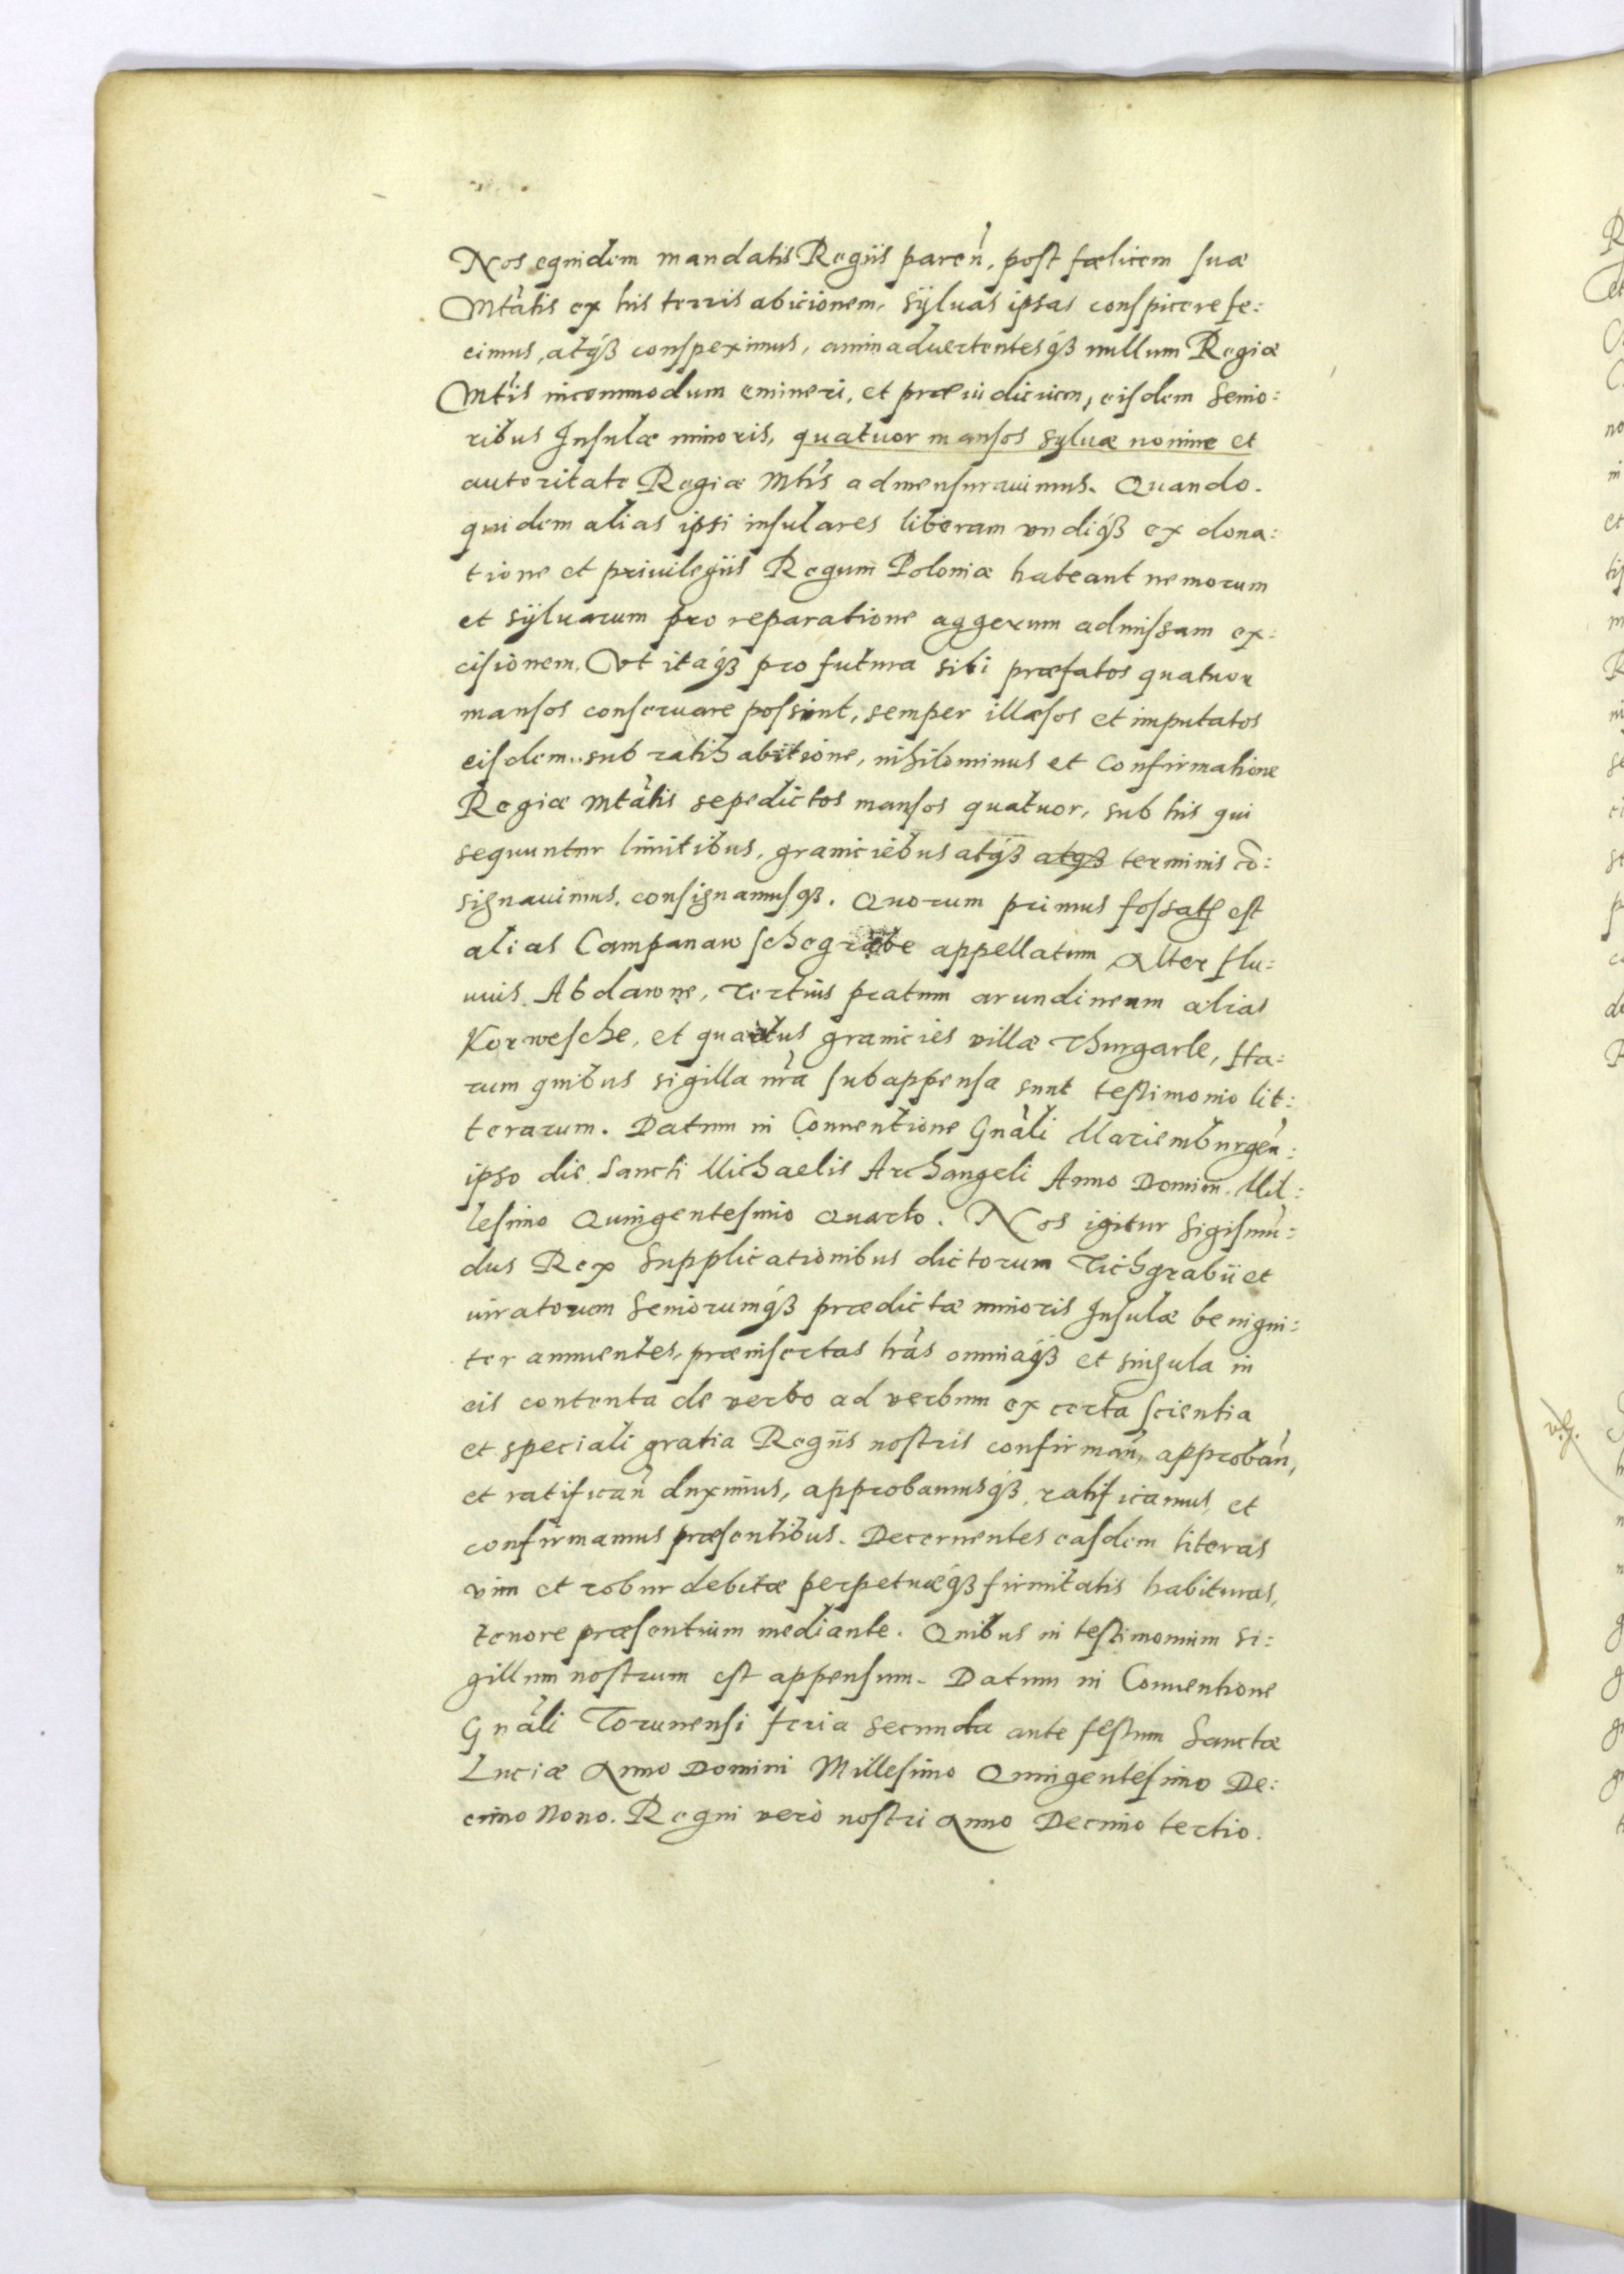 Nos equidem mandatis Regiis paren̄, post fælicem suæ
Mtātis ex his terris abicionem, sÿluas ipsas conspicere fe:
cimus, atq́ꝫ conspeximus, animaduertentesq́ꝫ nullum Regiæ
Mtīs incommodum emineri, et præiudicium, eisdem Senio:
ribus Insulæ minoris, quatuor mansos syluæ nomine et
autoritate Regiæ Mtīs admensurauimus. Quando.
quidem alias ipsi insulares liberam vndiq́ꝫ ex dona:
tione et priuilegiis Regum Poloniæ habeant nemorum
et sÿluarum pro reparatione aggerum admissam ex:
cisionem, Vt itaq́ꝫ pro futura sibi præfatos quatuor
mansos conseruare possint, semper illæsos et imputatos
eisdem sub ratihabitione, nihilominus et Confirmatione
Regiæ Mtātis sepedictos mansos quatuor, sub his qui
sequuntur limitibus, graniciebus atq́ꝫ atqꝫ terminis cō:
signauimus, consignamusqꝫ. Quorum primus fossatꝭ est
alias Campanaw schegrabe appellatum Alter flu:
uius Abdawne, Tertius pratum arundineum alias
Korwesche, et quartus granicies villæ Thurgarle, Ha:
rum quibus sigilla nr̄a subappensa sunt testimonio lit:
terarum. Datum in Conuentione Gnāli Mariemburgen̄:
ipso die Sancti Michaelis Archangeli Anno Domini. Mil:
lesimo Quingentesimo Quarto. Nos igitur Sigismū:
dus Rex Supplicationibus dictorum Tichgrabii et
iuratorum Seniorumq́ꝫ prædictæ minoris Insulæ benigni:
ter annuentes, præinsertas lrās omniaq́ꝫ et singula in
eis contenta de verbo ad verbum ex certa scientia
et speciali gratia Regiis nostris confirman̄, approban̄,
et ratifican̄ duximus, approbamusq́ꝫ, ratificamus, et
confirmamus præsentibus. Decernentes easdem literas
vim et robur debitæ perpetuæq́ꝫ firmitatis habituras,
tenore præsentium mediante. Quibus in testimonium si:
gillum nostrum est appensum. Datum in Conuentione
Gnāli Torunensi feria secunda ante festum Sanctæ
Luciæ Anno Domini Millesimo Quingentesimo De:
cimo Nono. Regni verò nostri Anno Decimo tertio.